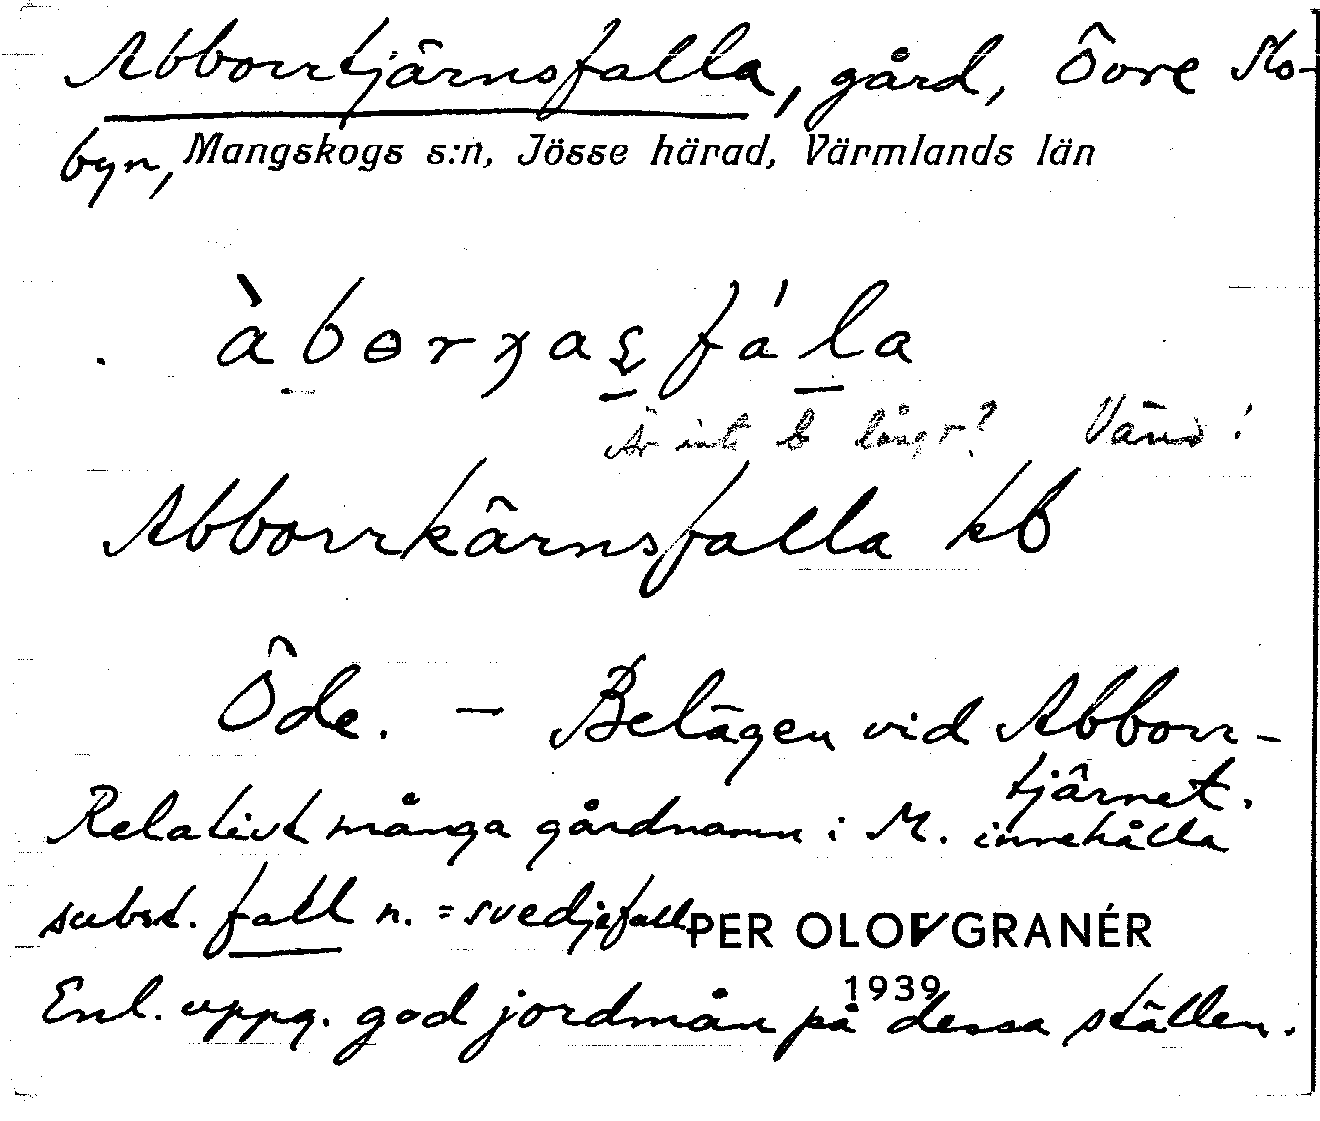 Abborrtjärnsfalla, gård, Övre Mo-
byn, Mangskogs s:n, Jösse härad, Värmlands län
Är inte b långt? Vänd!
Abborrkärnsfalla kb
Öde. — Belägen vid Abborr-
tjärnet.
Relativt många gårdnamn i M. innehålla
subst. fall n. = svedjefall
PER OLOF GRANÉR
1939
Enl. uppg. god jordmån på dessa ställen.